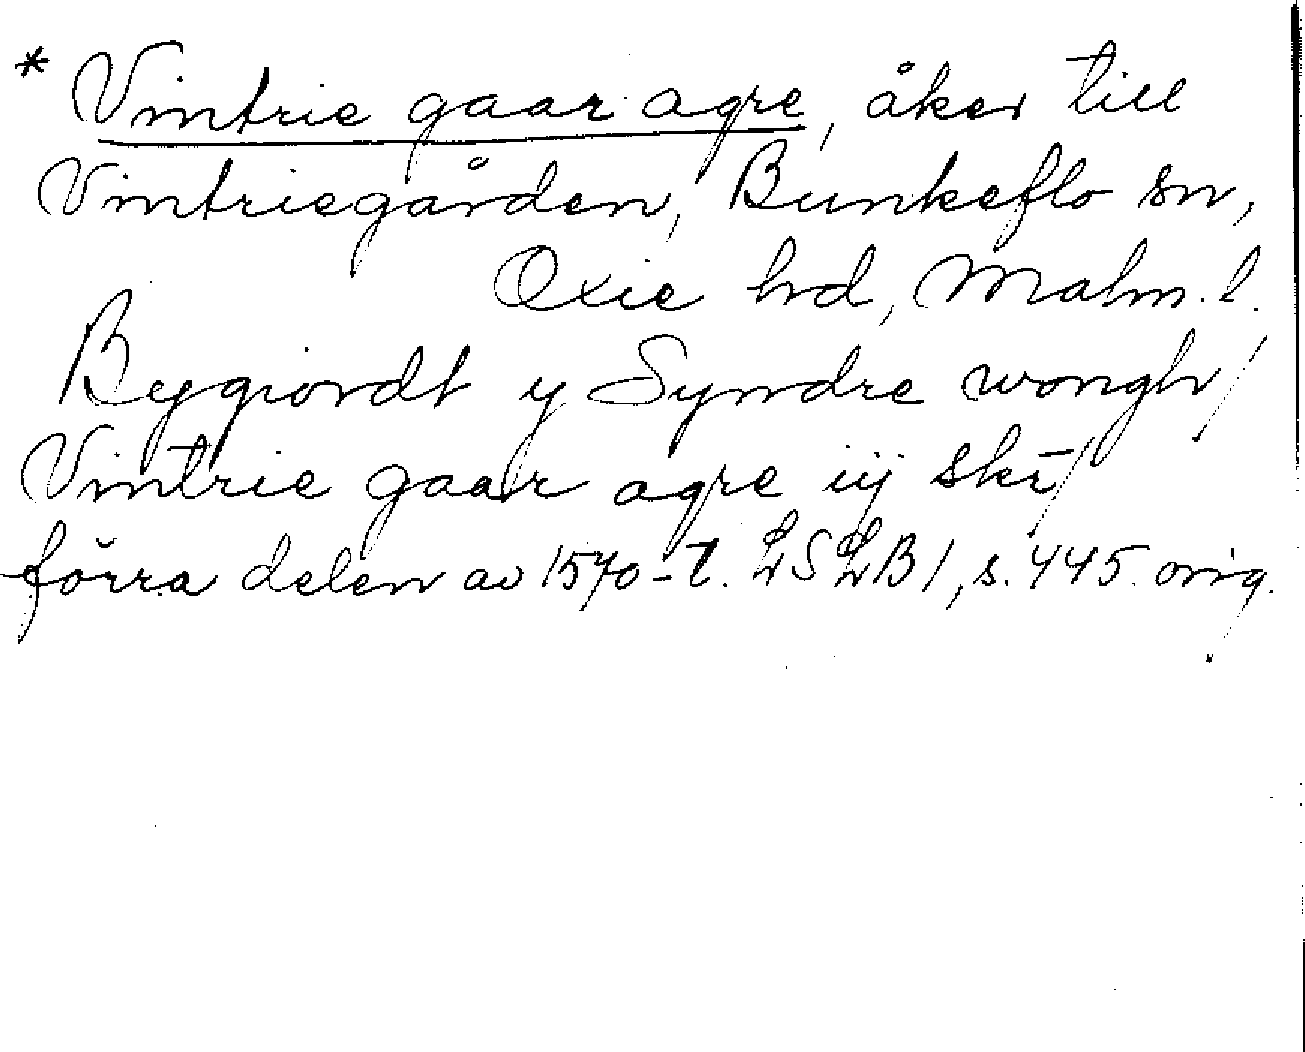 * Vintrie gaar agre, åker till
Vintriegården, Bunkeflo sn,
Oxie hd, Malm. l.
Bygiordt y Syndre wongh/
Vintrie gaar agre iij skī/
förra delen av 1570-t. LSLB 1, s. 445. orig.